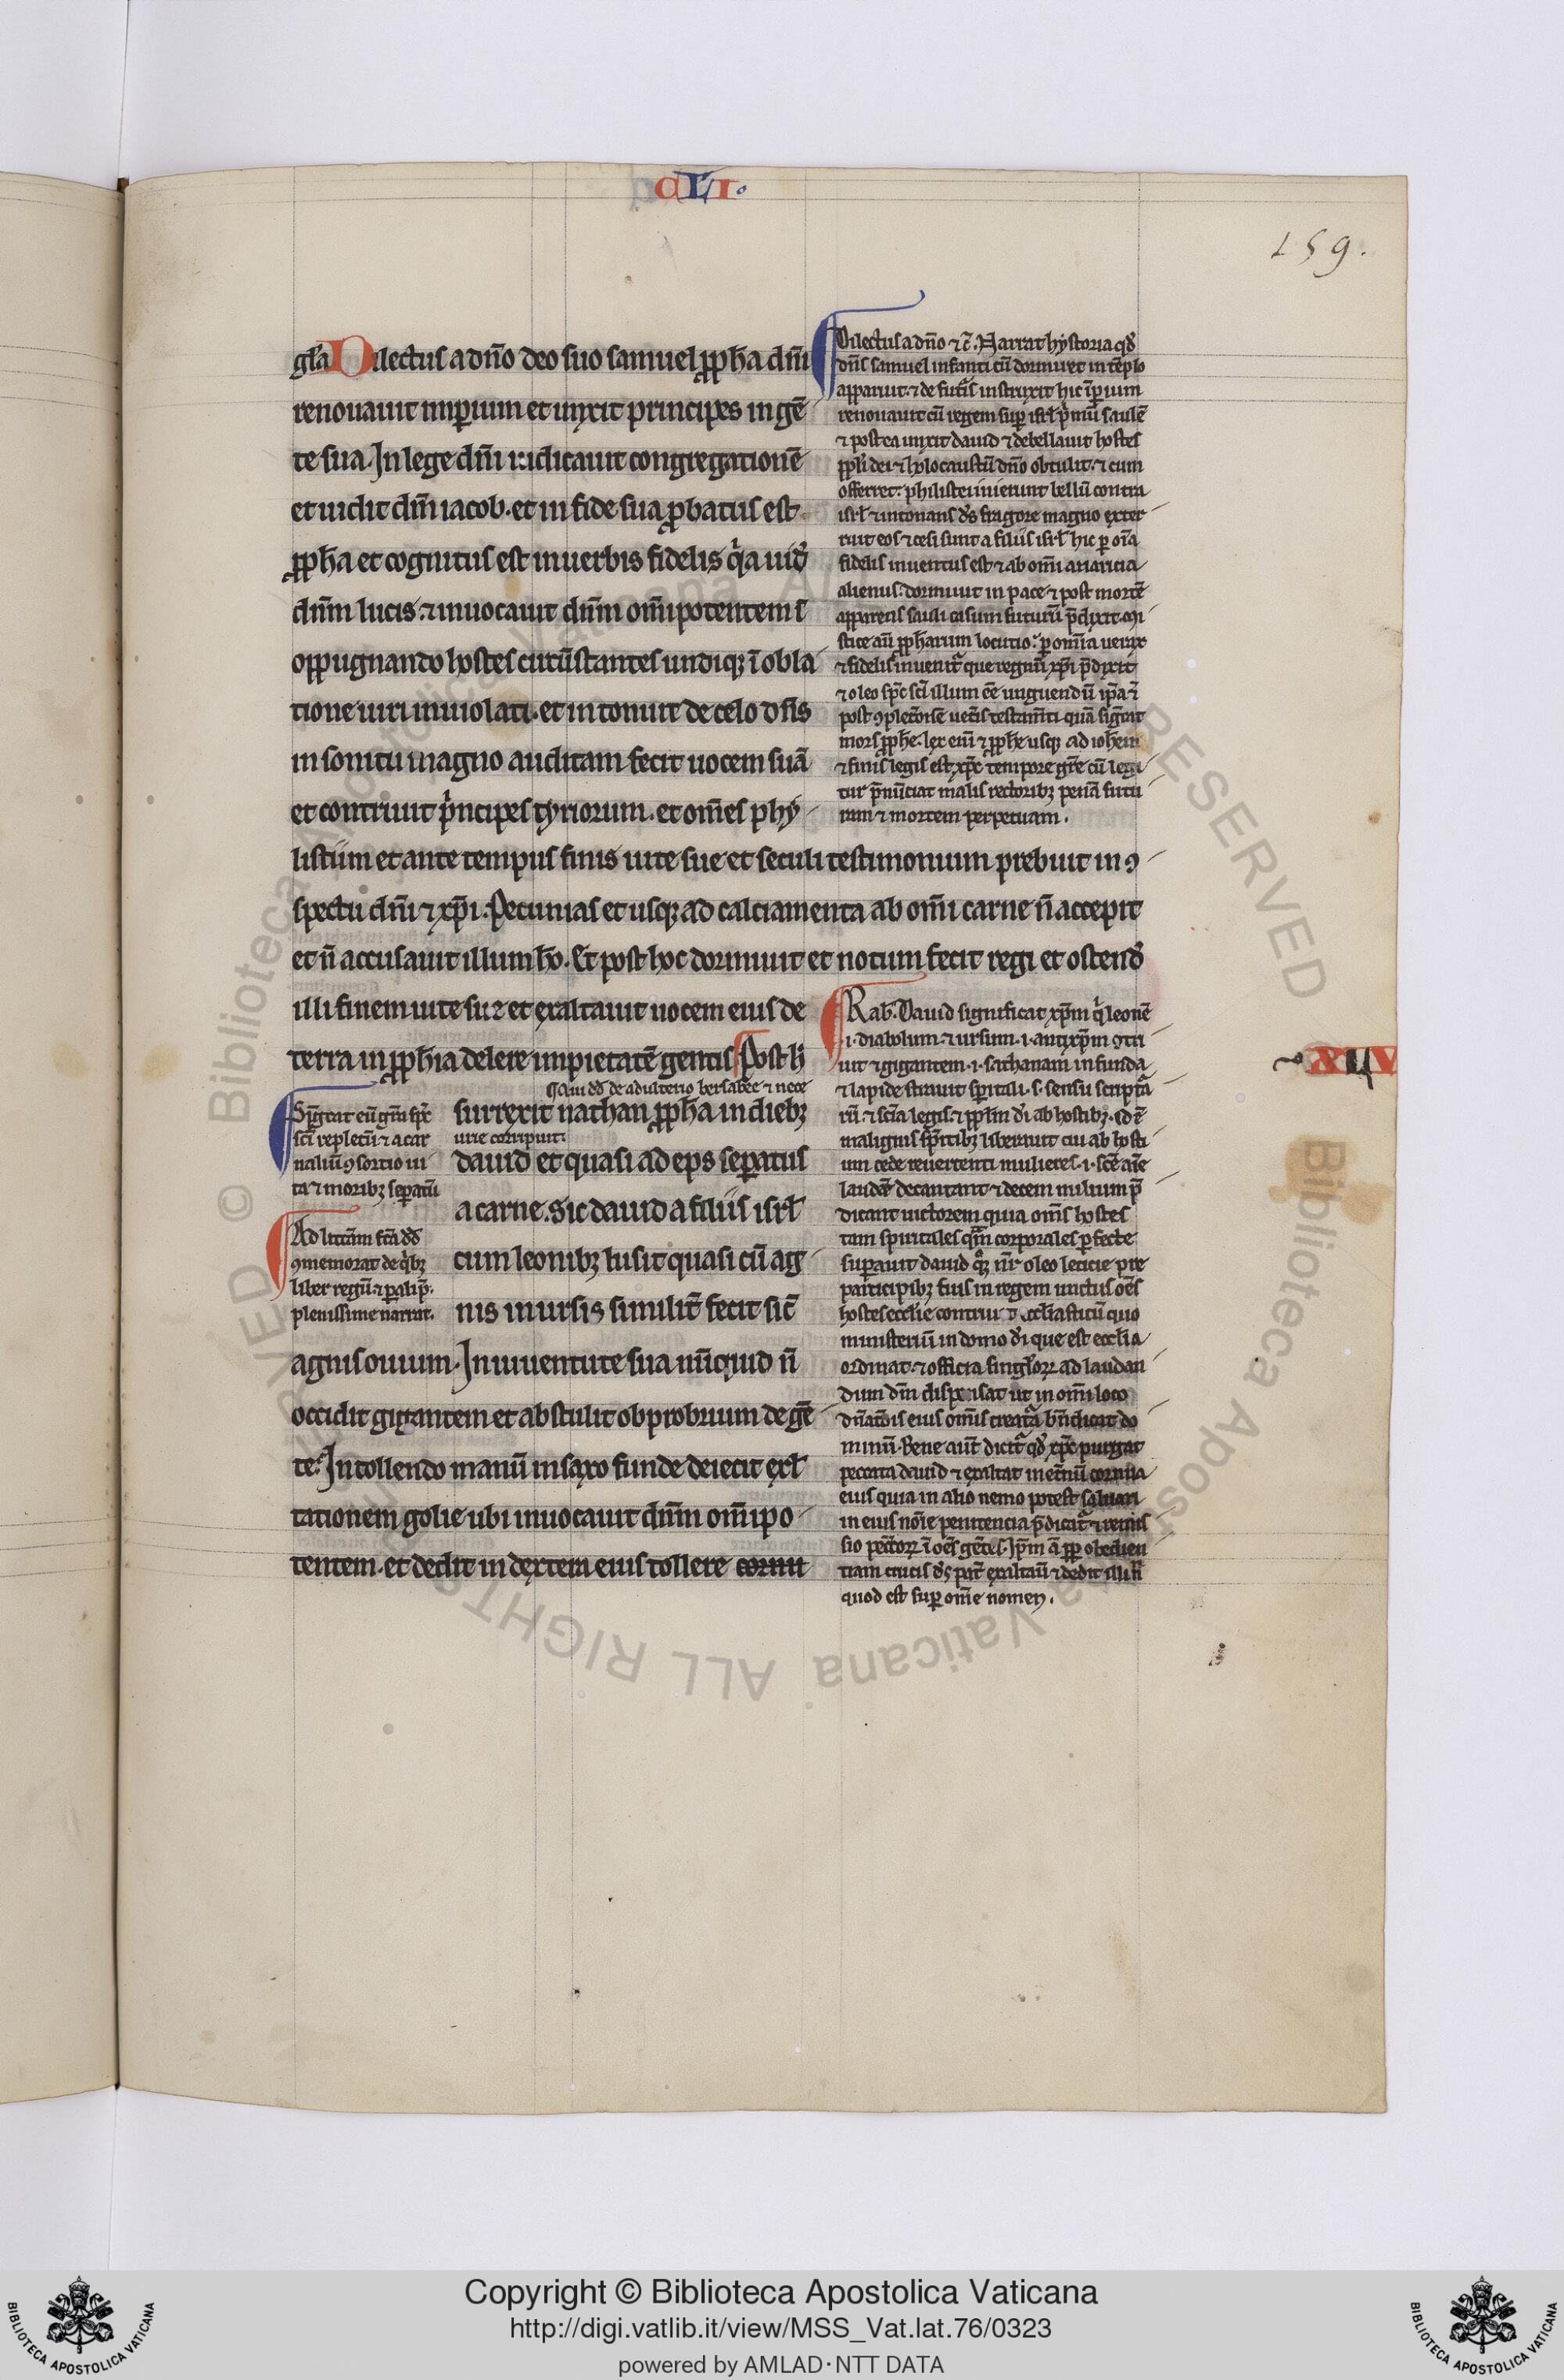 CLI.
159.
gl̃a Dilectus a dño deo suo samuel ꝓph̃a dñi
renouauit imꝑium et unxit principes in gẽ
te sua. In lege dñi iudicauit congregationẽ
et uidit dñm iacob. et in fide sua ꝓbatus est
ꝓph̃a et cognitus est in uerbis fidelis q̃a uid̃
dñm lucis. ⁊ inuocauit dñm om̃ipotentem ĩ
oppugnando hostes circũstantes undiqꝫ ĩ obla
tione uiri inuiolati. et intonuit de celo dñs
in sonitu magno auditam fecit uocem suã
et contriuit p̃ncipes tyriorum. et om̃es phy
listiim et ante tempus finis uite sue et seculi testimonium prebuit in ꝯ
spectu dñi ⁊ xp̃i. Pecunias et usqꝫ ad calciamenta ab om̃i carne ñ accepit
et ñ accusauit illum hõ. Et post hoc dormiuit et notum fecit regi et ostend̃
illi finem uite sue et exaltauit uocem eius de
terra in ꝓph̃ia delere impietatẽ gentis Post h̃
Qui dd̃ de adulterio bersabee ⁊ nece
surrexit nathan ꝓph̃a in diebꝫ
urie corripuit.
dauid et quasi adeps seꝑatus
a carne. sic dauid a filiis isrl̃
cum leonibꝫ lusit quasi cũ ag
nis in ursis similit̃ fecit sic̃
agnis ouium. In iuuentute sua nũquid ñ
occidit gigantem et abstulit obprobrium de gẽ
te. In tollendo manũ in saxo funde deiecit exl̃
tationem golie ubi inuocauit dñm om̃ipo
tentem. et dedit in dextera eius tollere cornu
sc̃i repletũ ⁊ a car
naliũ ꝯsortio ui
ta ⁊ moribꝫ seꝑatũ
Ad litt̃am fc̃a dd̃
ꝯmemorat de q̃bꝫ
liber regũ ⁊ ꝑalip̃.
plenissime narrat.
Dilectus a dño ⁊ c̃. Narrat hystoria qd̃
dñs samuel infanti cũ dormiret in tẽplo
apparuit. ⁊ de fut̃is instruxit hic ĩꝑium
renouauit cũ regem suꝑ isrl̃ p̃mũ saulẽ
⁊ postea unxit dauid ⁊ debellauit hostes
ppl̃i dei ⁊ holocaustũ dño obtulit. ⁊ cum
offerret. philistei inierunt bellũ contra
isrl̃ ⁊ intonans ds̃ fragore magno exter
ruit eos ⁊ cesi sunt a filiis isrl̃ hic ꝑ oĩa
fidelis inuentus est ⁊ ab om̃i auaricia
alienus. dormiuit in pace ⁊ post mortẽ
apparens sauli casum futurũ p̃dixit. mi
stice aũ ꝓph̃arum locutio. ꝑ om̃ia uerax
⁊ fidelis inuenit̃ que regnũ xp̃i p̃dixit
⁊ oleo sp̃c sc̃i illum ẽe unguendũ
mors ꝓph̃e. lex eni̇̃ ⁊ ꝓph̃e usqꝫ ad ioh̃em
⁊ finis legis est xp̃c tempore gr̃e cũ legi
tur p̃nũciat malis rectoribꝫ penã futu
ram ⁊ mortem perpetuam.
Rab̃. Dauid significat xp̃m q̃ leonẽ
.i. diabolum. ⁊ ursum .i. antixp̃m ꝯtri
uit ⁊ gigantem .i. sathanam in funda
⁊ lapide strauit sp̃ritali .s. sensu scriptã
rũ. ⁊ sc̃ia legis. ⁊ ppl̃m dĩ ab hostibꝫ. id ẽ
malignis sp̃ritibꝫ liberauit cui ab hosti
um cede reuertenti mulieres .i. sc̃e aĩe
laudẽ decantant ⁊ decem milium p̃
dicant uictorem quia om̃s hostes
tam spiritales q̃m corporales ꝑfecte
suꝑauit dauid qꝫ ñr oleo leticie pre
participibꝫ suis in regem unctus oẽs
hostes eccl̃ie contriuit
ministeriũ in domo dĩ que est eccl̃ia
ordinat. ⁊ officia singl̃orꝝ ad laudan
dum dm̃ dispensat ut in om̃i loco
dñat̃ois eius om̃is creat̃a bñdicat do
minũ. Bene aut̃ dicit̃ qd̃ xp̃c purgat
peccata dauid ⁊ exaltat in et̃nũ cornua
eius quia in alio nemo potest saluari
in eius nõie penitencia p̃dicat̃ ⁊ remis
sio pecc̃torꝝ ĩ oẽs gẽtes.
tiam crucis ds̃ pat̃ exaltauit ⁊ dedit illi
quod est suꝑ om̃e nomen.
XLVII
Copyright © Biblioteca Apostolica Vaticana
http://digi.vatlib.it/view/MSS_Vat.lat.76/0323
powered by AMLAD·NTT DATA
BIBLIOTECA APOSTOLICA VATICANA
BIBLIOTECA APOSTOLICA VATICANA